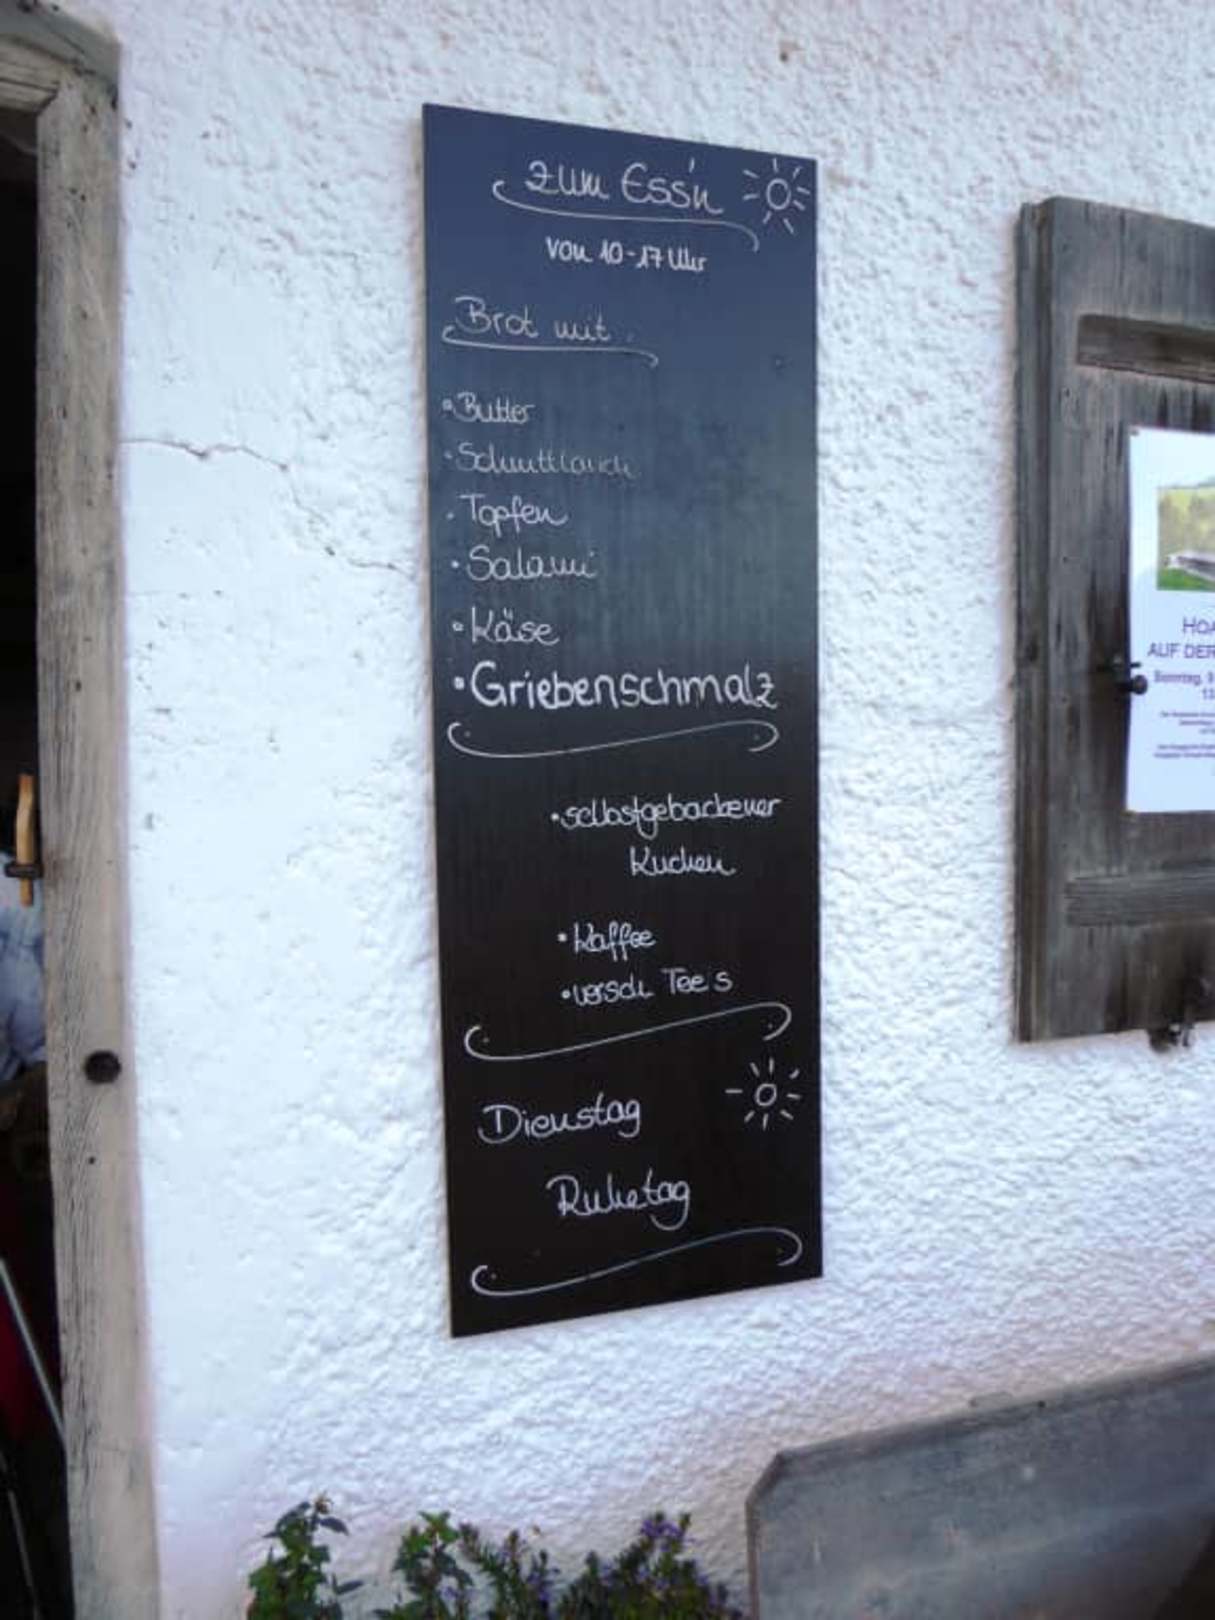 Zum Ess'n
von 10-17 Uhr
Brot mit:
• Butter
• Schnittlauch
• Topfen
• Salami
• Käse
• Griebenschmalz
• selbstgebackener
Kuchen
• Kaffee
• versch Tee's
Dienstag
Ruhetag
AUF DER
Sonntag, 9